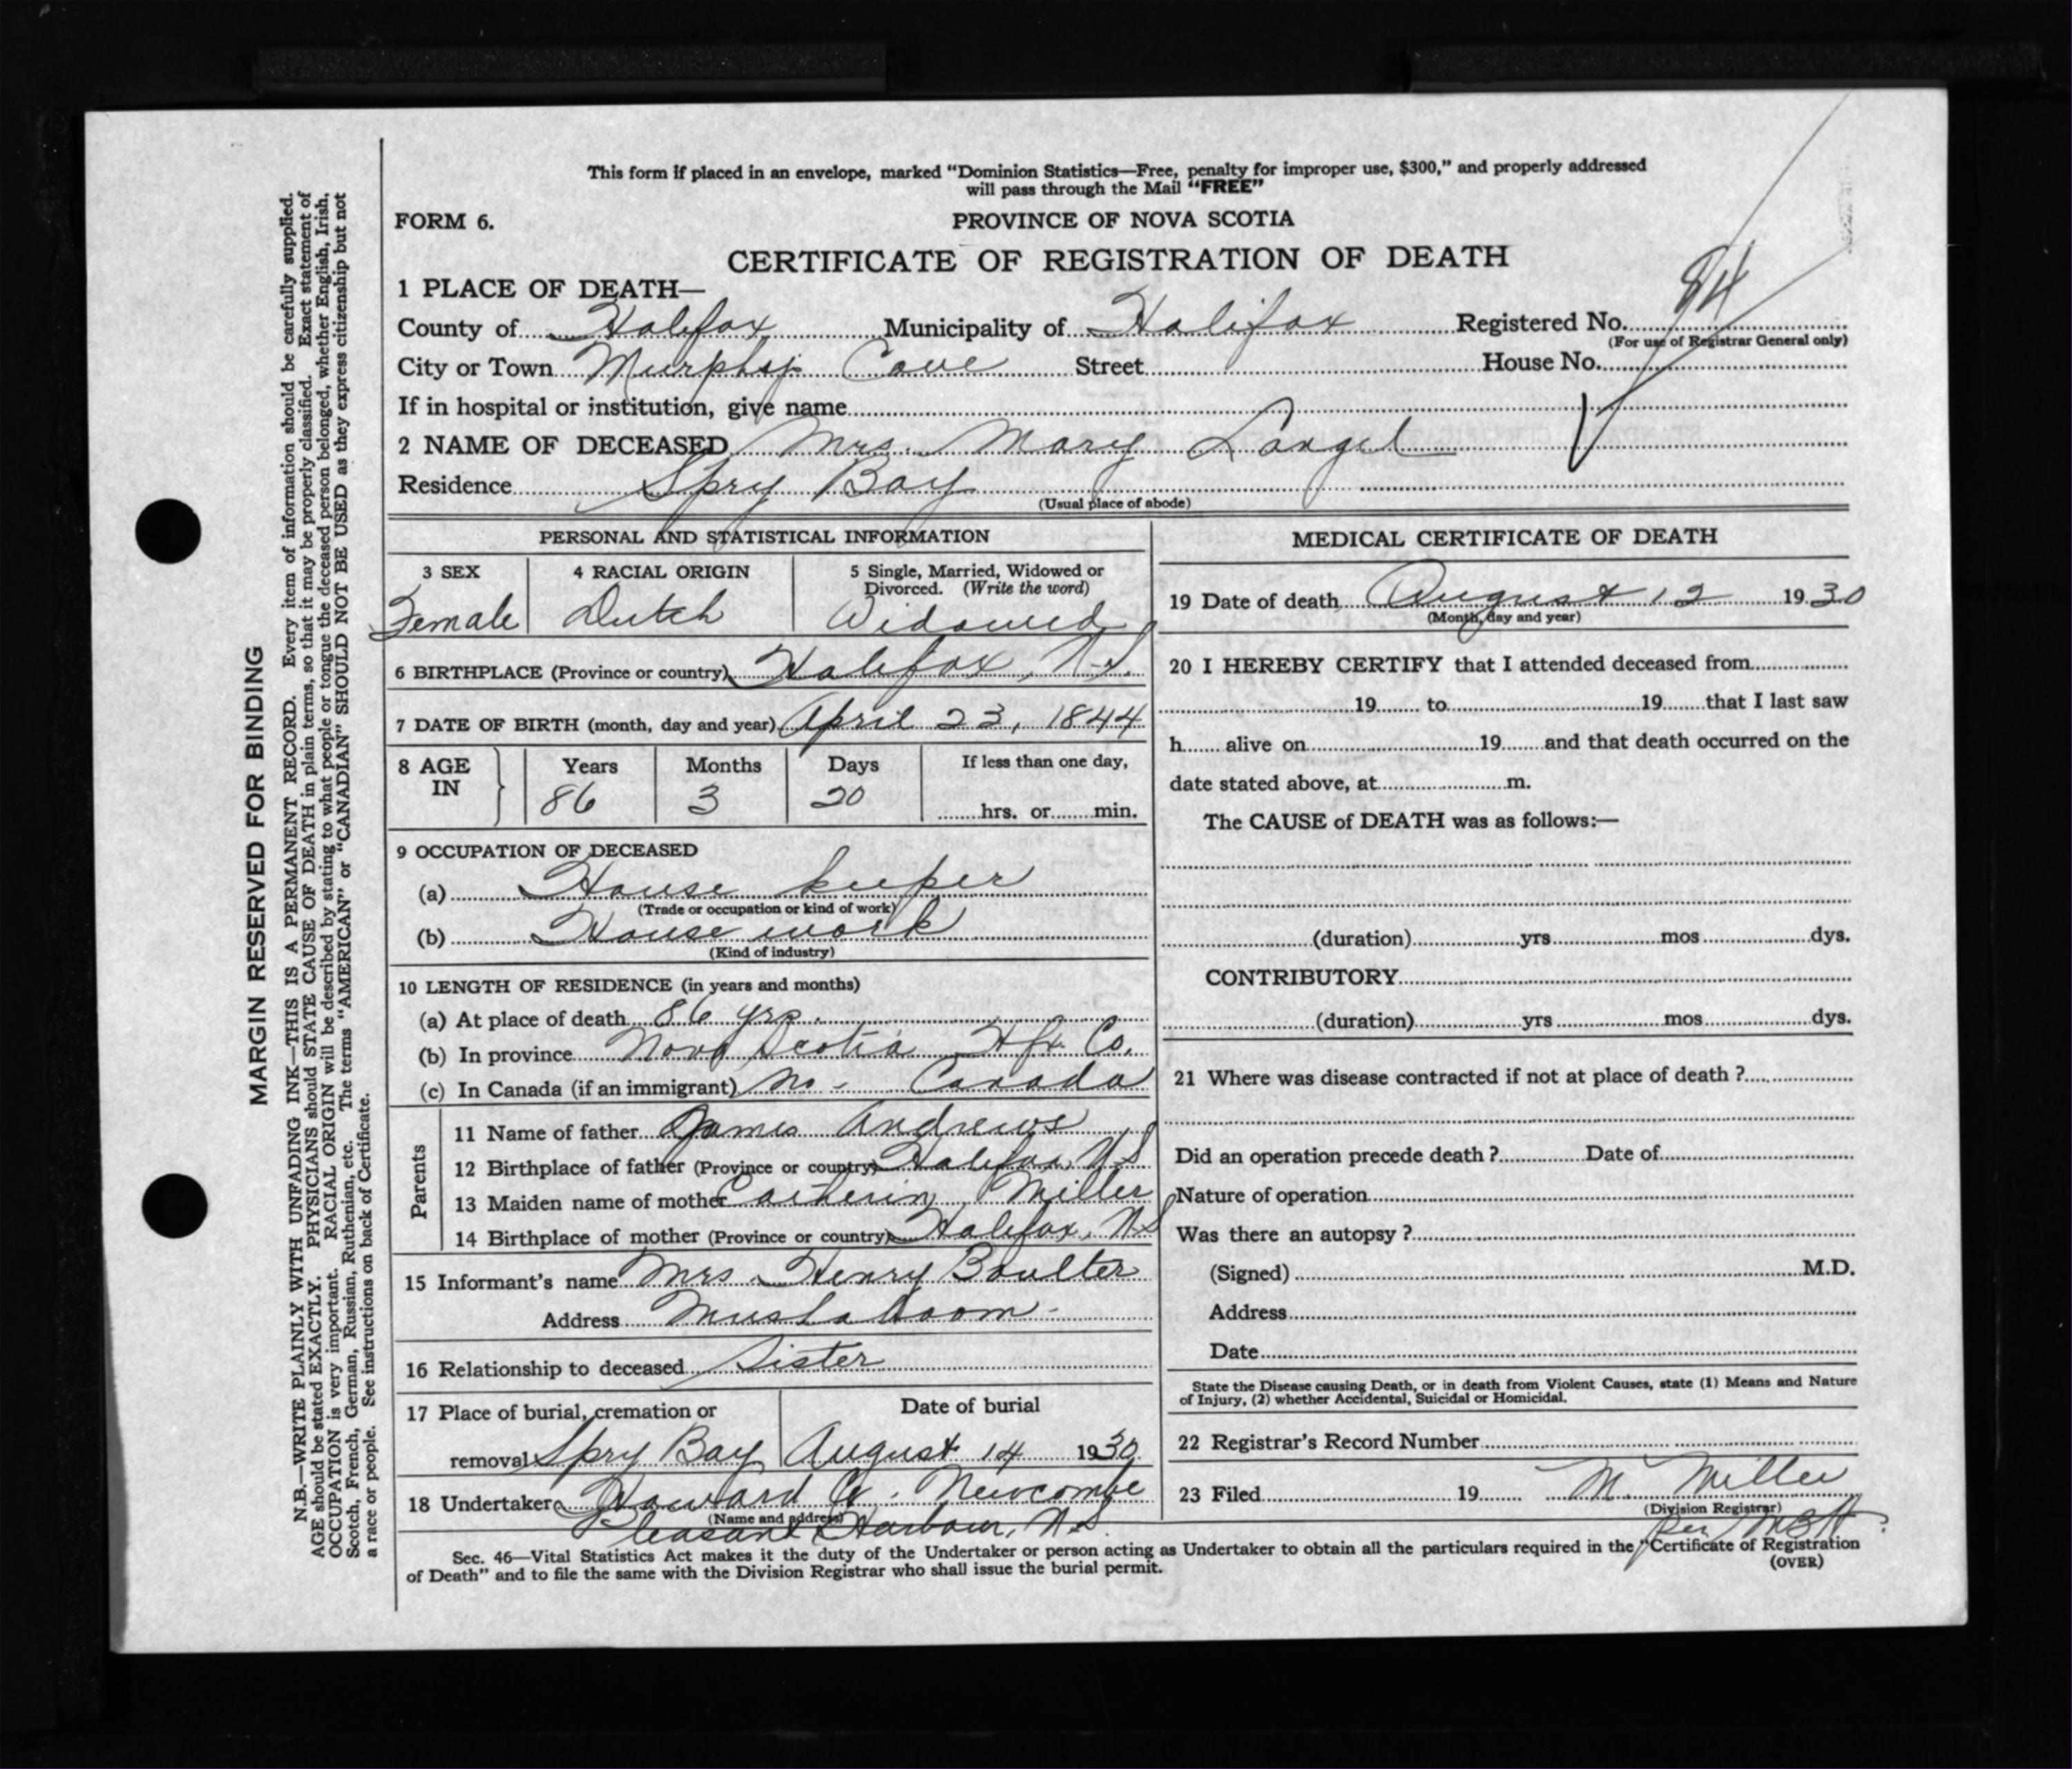 This form if placed in an envelope, marked “Dominion Statistics—Free, penalty for improper use, $300,” and properly addressed
will pass through the Mail “FREE”
FORM 6.
PROVINCE OF NOVA SCOTIA
CERTIFICATE OF REGISTRATION OF DEATH
1 PLACE OF DEATH—
County of Halifax Municipality of Halifax Registered No. 84
(For use of Registrar General only)
City or Town Murphy Cove Street House No.
If in hospital or institution, give name
2 NAME OF DECEASED Mrs. Mary
Residence Spry Bay
(Usual place of abode)
PERSONAL AND STATISTICAL INFORMATION
3 SEX 4 RACIAL ORIGIN 5 Single, Married, Widowed or
Divorced. (Write the word)
Female Dutch Widowed
6 BIRTHPLACE (Province or country) Halifax, N.S.
7 DATE OF BIRTH (month, day and year) April 23, 1844
8 AGE IN Years Months Days If less than one day,
86 3 20 hrs. or min.
9 OCCUPATION OF DECEASED
(a) House keeper
(Trade or occupation or kind of work)
(b) House work
(Kind of industry)
10 LENGTH OF RESIDENCE (in years and months)
(a) At place of death 86 yrs.
(b) In province Nova Scotia Hfx Co.
(c) In Canada (if an immigrant) no - Canada
Parents
11 Name of father James Andrews
12 Birthplace of father (Province or country) Halifax, N.S
13 Maiden name of mother Catherin Miller
14 Birthplace of mother (Province or country) Halifax, N.S
15 Informant's name Mrs. Henry Boulter
Address Mushaboom -
16 Relationship to deceased Sister
17 Place of burial, cremation or Date of burial
removal Spry Bay August 14 1930
18 Undertaker Howard Newcombe
(Name and address)
Pleasant Harbour, N.S.
MEDICAL CERTIFICATE OF DEATH
19 Date of death August 12 1930
(Month, day and year)
20 I HEREBY CERTIFY that I attended deceased from
19 to 19 that I last saw
h alive on 19 and that death occurred on the
date stated above, at m.
The CAUSE of DEATH was as follows:—
(duration) yrs mos dys.
CONTRIBUTORY
(duration) yrs mos dys.
21 Where was disease contracted if not at place of death ?
Did an operation precede death ? Date of
Nature of operation
Was there an autopsy ?
(Signed) M.D.
Address
Date
State the Disease causing Death, or in death from Violent Causes, state (1) Means and Nature
of Injury, (2) whether Accidental, Suicidal or Homicidal.
22 Registrar's Record Number
23 Filed 19 M. Miller
(Division Registrar)
per
Sec. 46—Vital Statistics Act makes it the duty of the Undertaker or person acting as Undertaker to obtain all the particulars required in the “Certificate of Registration
of Death” and to file the same with the Division Registrar who shall issue the burial permit.
(OVER)
MARGIN RESERVED FOR BINDING
N.B.—WRITE PLAINLY WITH UNFADING INK—THIS IS A PERMANENT RECORD. Every item of information should be carefully supplied.
AGE should be stated EXACTLY. PHYSICIANS should STATE CAUSE OF DEATH in plain terms, so that it may be properly classified. Exact statement of
OCCUPATION is very important. RACIAL ORIGIN will be described by stating to what people or tongue the deceased person belonged, whether English, Irish,
Scotch, French, German, Russian, Ruthenian, etc. The terms “AMERICAN” or “CANADIAN” SHOULD NOT BE USED as they express citizenship but not
a race or people. See instructions on back of Certificate.